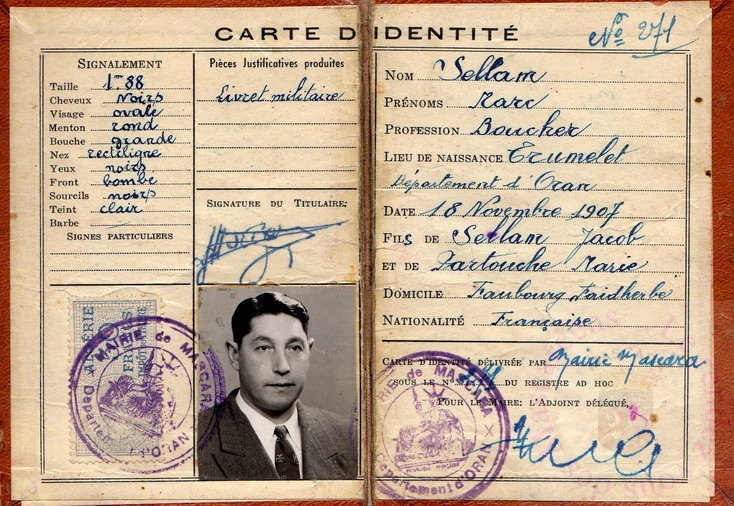 CARTE D'IDENTITÉ
No 271
SIGNALEMENT
Taille 1m 88
Cheveux Noirs
Visage ovale
Menton rond
Bouche grande
Nez rectiligne
Yeux noirs
Front bombe
Soureils noirs
Teint clair
Barbe
SIGNES PARTICULIERS
Pièces Justificatives produites
Livret militaire
SIGNATURE DU TITULAIRE:
NOM Sellam
PRÉNOMS Marc
PROFESSION Boucher
LIEU DE NAISSANCE Trumelet
Département d'Oran
DATE 18 Novembre 1907
FILS DE Sellam Jacob
ET DE Partouche Marie
DOMICILE Faubourg Faidherbe
NATIONALITÉ Française
CARTE D'IDENTITÉ DÉLIVRÉE PAR Mairie Mascara
SOUS LE No DU REGISTRE AD HOC
POUR LE MAIRE: L'ADJOINT DÉLÉGUÉ,
MAIRIE de MASCARA
Département d'ORAN
RIE de MASCARA
Département d'ORAN